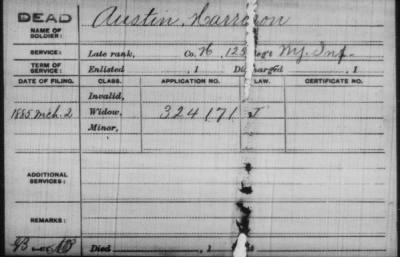 DEAD
NAME OF SOLDIER: Austin, Harrison
SERVICE: Late rank, Co. H, 123 Reg't N.Y. Inf.
TERM OF SERVICE: Enlisted , 1 Discharged , 1
DATE OF FILING. CLASS. APPLICATION NO. LAW. CERTIFICATE NO.
Invalid,
1885 Mch. 2 Widow, 324171
Minor,
ADDITIONAL SERVICES:
REMARKS:
Died , 1